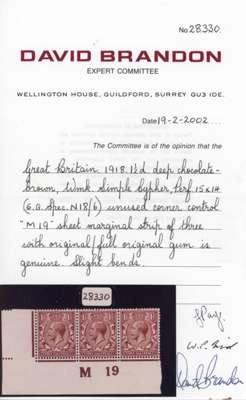 No 28330.
DAVID BRANDON
EXPERT COMMITTEE
WELLINGTON HOUSE, GUILDFORD, SURREY GU3 1DE.
Date 19-2-2002
The Committee is of the opinion that the
Great Britain 1918. 1½d deep chocolate-
brown, wmk simple cypher, perf 15x14
(S.G. Spec. N18/6) unused corner control
"M 19" sheet marginal strip of three
with original/full original gum is
genuine. Slight bends.
28330
M 19
David Brandon